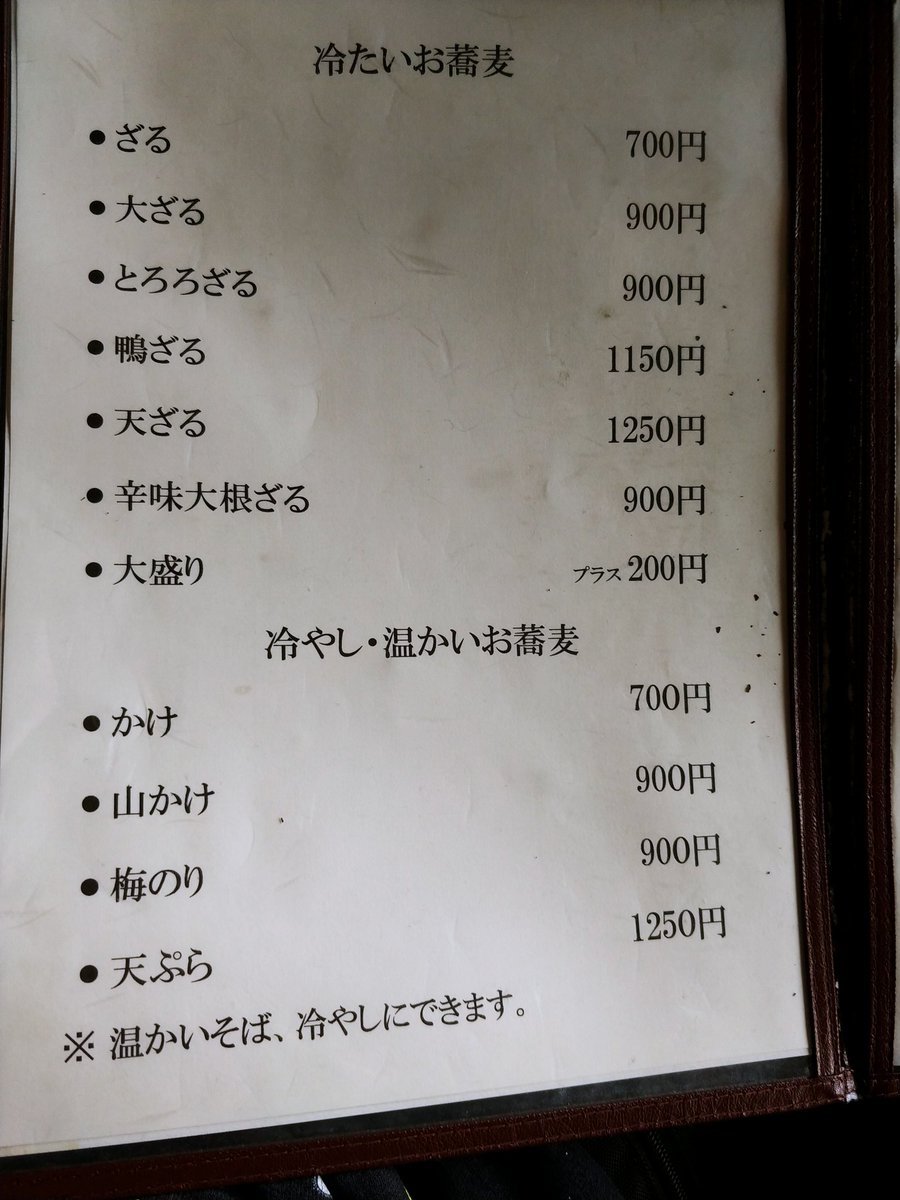 冷たいお蕎麦
●ざる 700円
●大ざる 900円
●とろろざる 900円
●鴨ざる 1150円
●天ざる 1250円
●辛味大根ざる 900円
●大盛り プラス200円
冷やし・温かいお蕎麦
●かけ 700円
●山かけ 900円
●梅のり 900円
●天ぷら 1250円
※ 温かいそば、冷やしにできます。